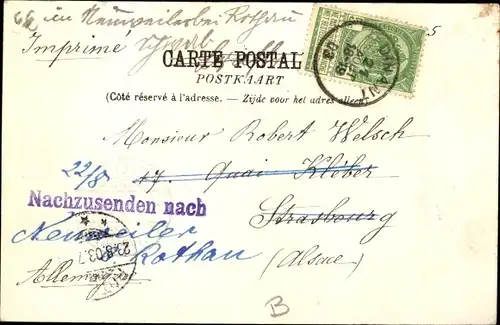 im Neuweiler bei Rothau
Imprimé
CARTE POSTALE
POSTKAART
(Côté réservé à l'adresse. — Zijde voor het adres alleen.)
DINANT
Monsieur Robert Welsch
22/8 17. Quai Kléber
Nachzusenden nach
Strasbourg
Neuweiler
23.8.03.7
Rothau
(Alsace)
Allemagne
B
5